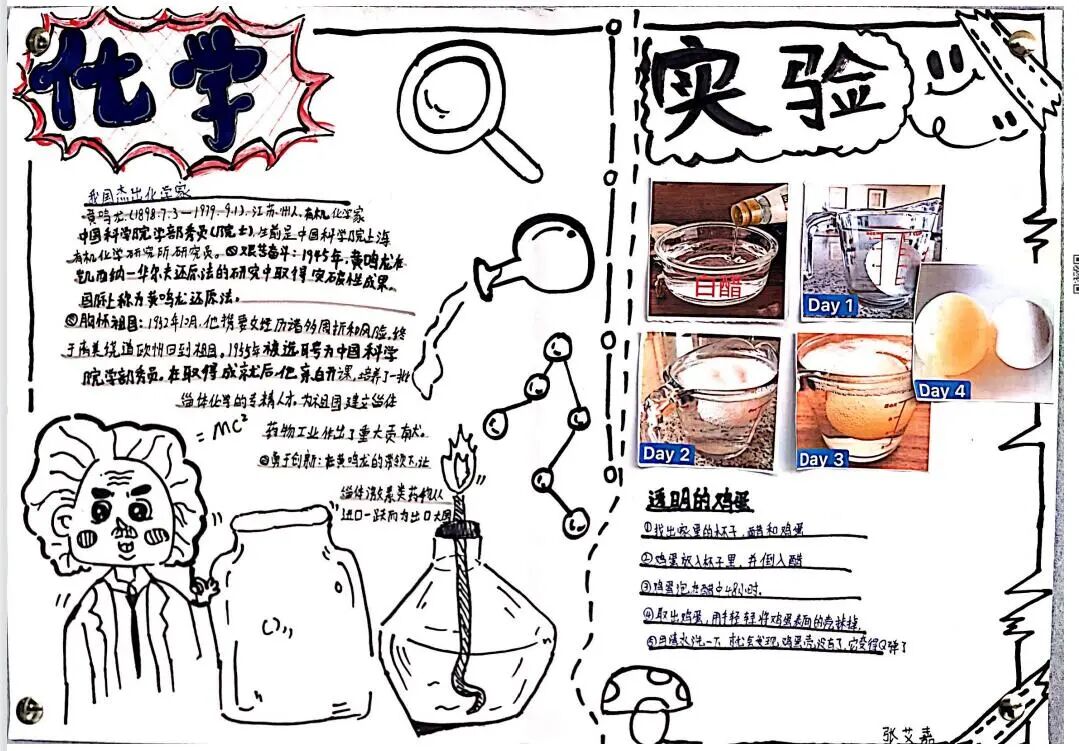 化学
我国杰出化学家
黄鸣龙(1898.7.3—1979.9.1),江苏州人,有机化学家
中国科学院学部委员(院士),生前是中国科学院上海
有机化学研究所研究员。①艰苦奋斗:1945年,黄鸣龙在
凯西纳一华尔夫还原法的研究中取得突破性成果。
国际上称为黄鸣龙还原法。
②胸怀祖国:1952年10月,他携妻女经历诸多周折和风险,终
于离美绕道欧州回到祖国。1955年被选聘为中国科学
院学部委员。在取得成就后他亲自开课,培养了一批
甾体化学的专精人才,为祖国建立甾体
药物工业作出了重大贡献。
③勇于创新:在黄鸣龙的带领下,让
甾体激素类药物从
进口一跃而为出口大国
= MC²
实验
白醋
Day 1
Day 2
Day 3
Day 4
透明的鸡蛋
①找出家里的杯子,醋和鸡蛋
②鸡蛋放入杯子里,并倒入醋
③鸡蛋泡在醋中48小时。
④取出鸡蛋,用手轻轻将鸡蛋表面的壳抹掉,
⑤用清水洗一下,就会发现,鸡蛋壳没有了,它变得Q弹了
张艾嘉